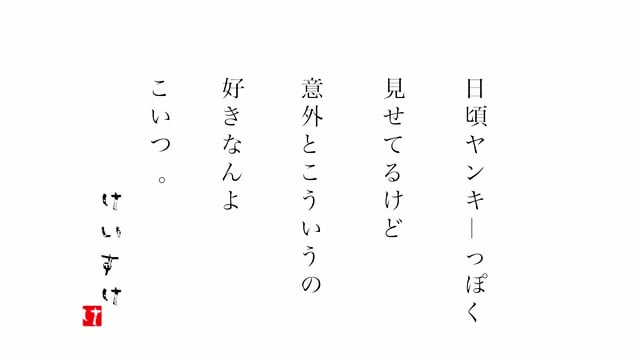 日頃ヤンキーっぽく
見せてるけど
意外とこういうの
好きなんよ
こいつ。
けいすけ
け